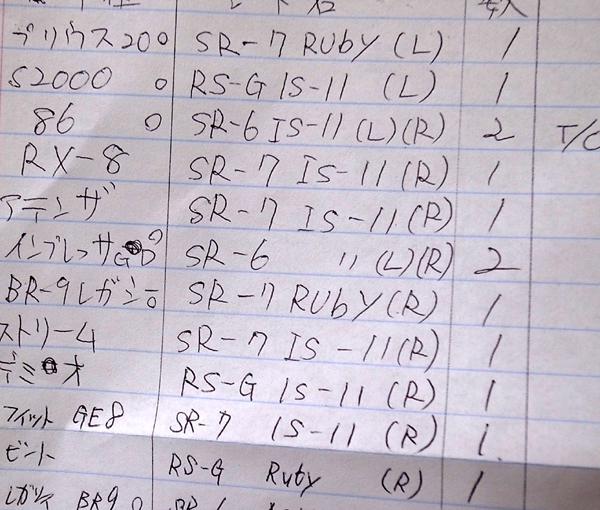 プリウス200 SR-7 RUBY (L) 1
S2000 0 RS-G IS-11 (L) 1
86 0 SR-6 IS-11 (L)(R) 2 T/C
RX-8 SR-7 IS-11 (R) 1
アテンザ SR-7 IS-11 (R) 1
インプレッサG SR-6 〃 (L)(R) 2
BR-9レガシ0 SR-7 RUBY (R) 1
ストリーム SR-7 IS-11 (R) 1
デミオ RS-G IS-11 (R) 1
フィット GE8 SR-7 IS-11 (R) 1
ビート RS-G Ruby (R) 1
BR9 0